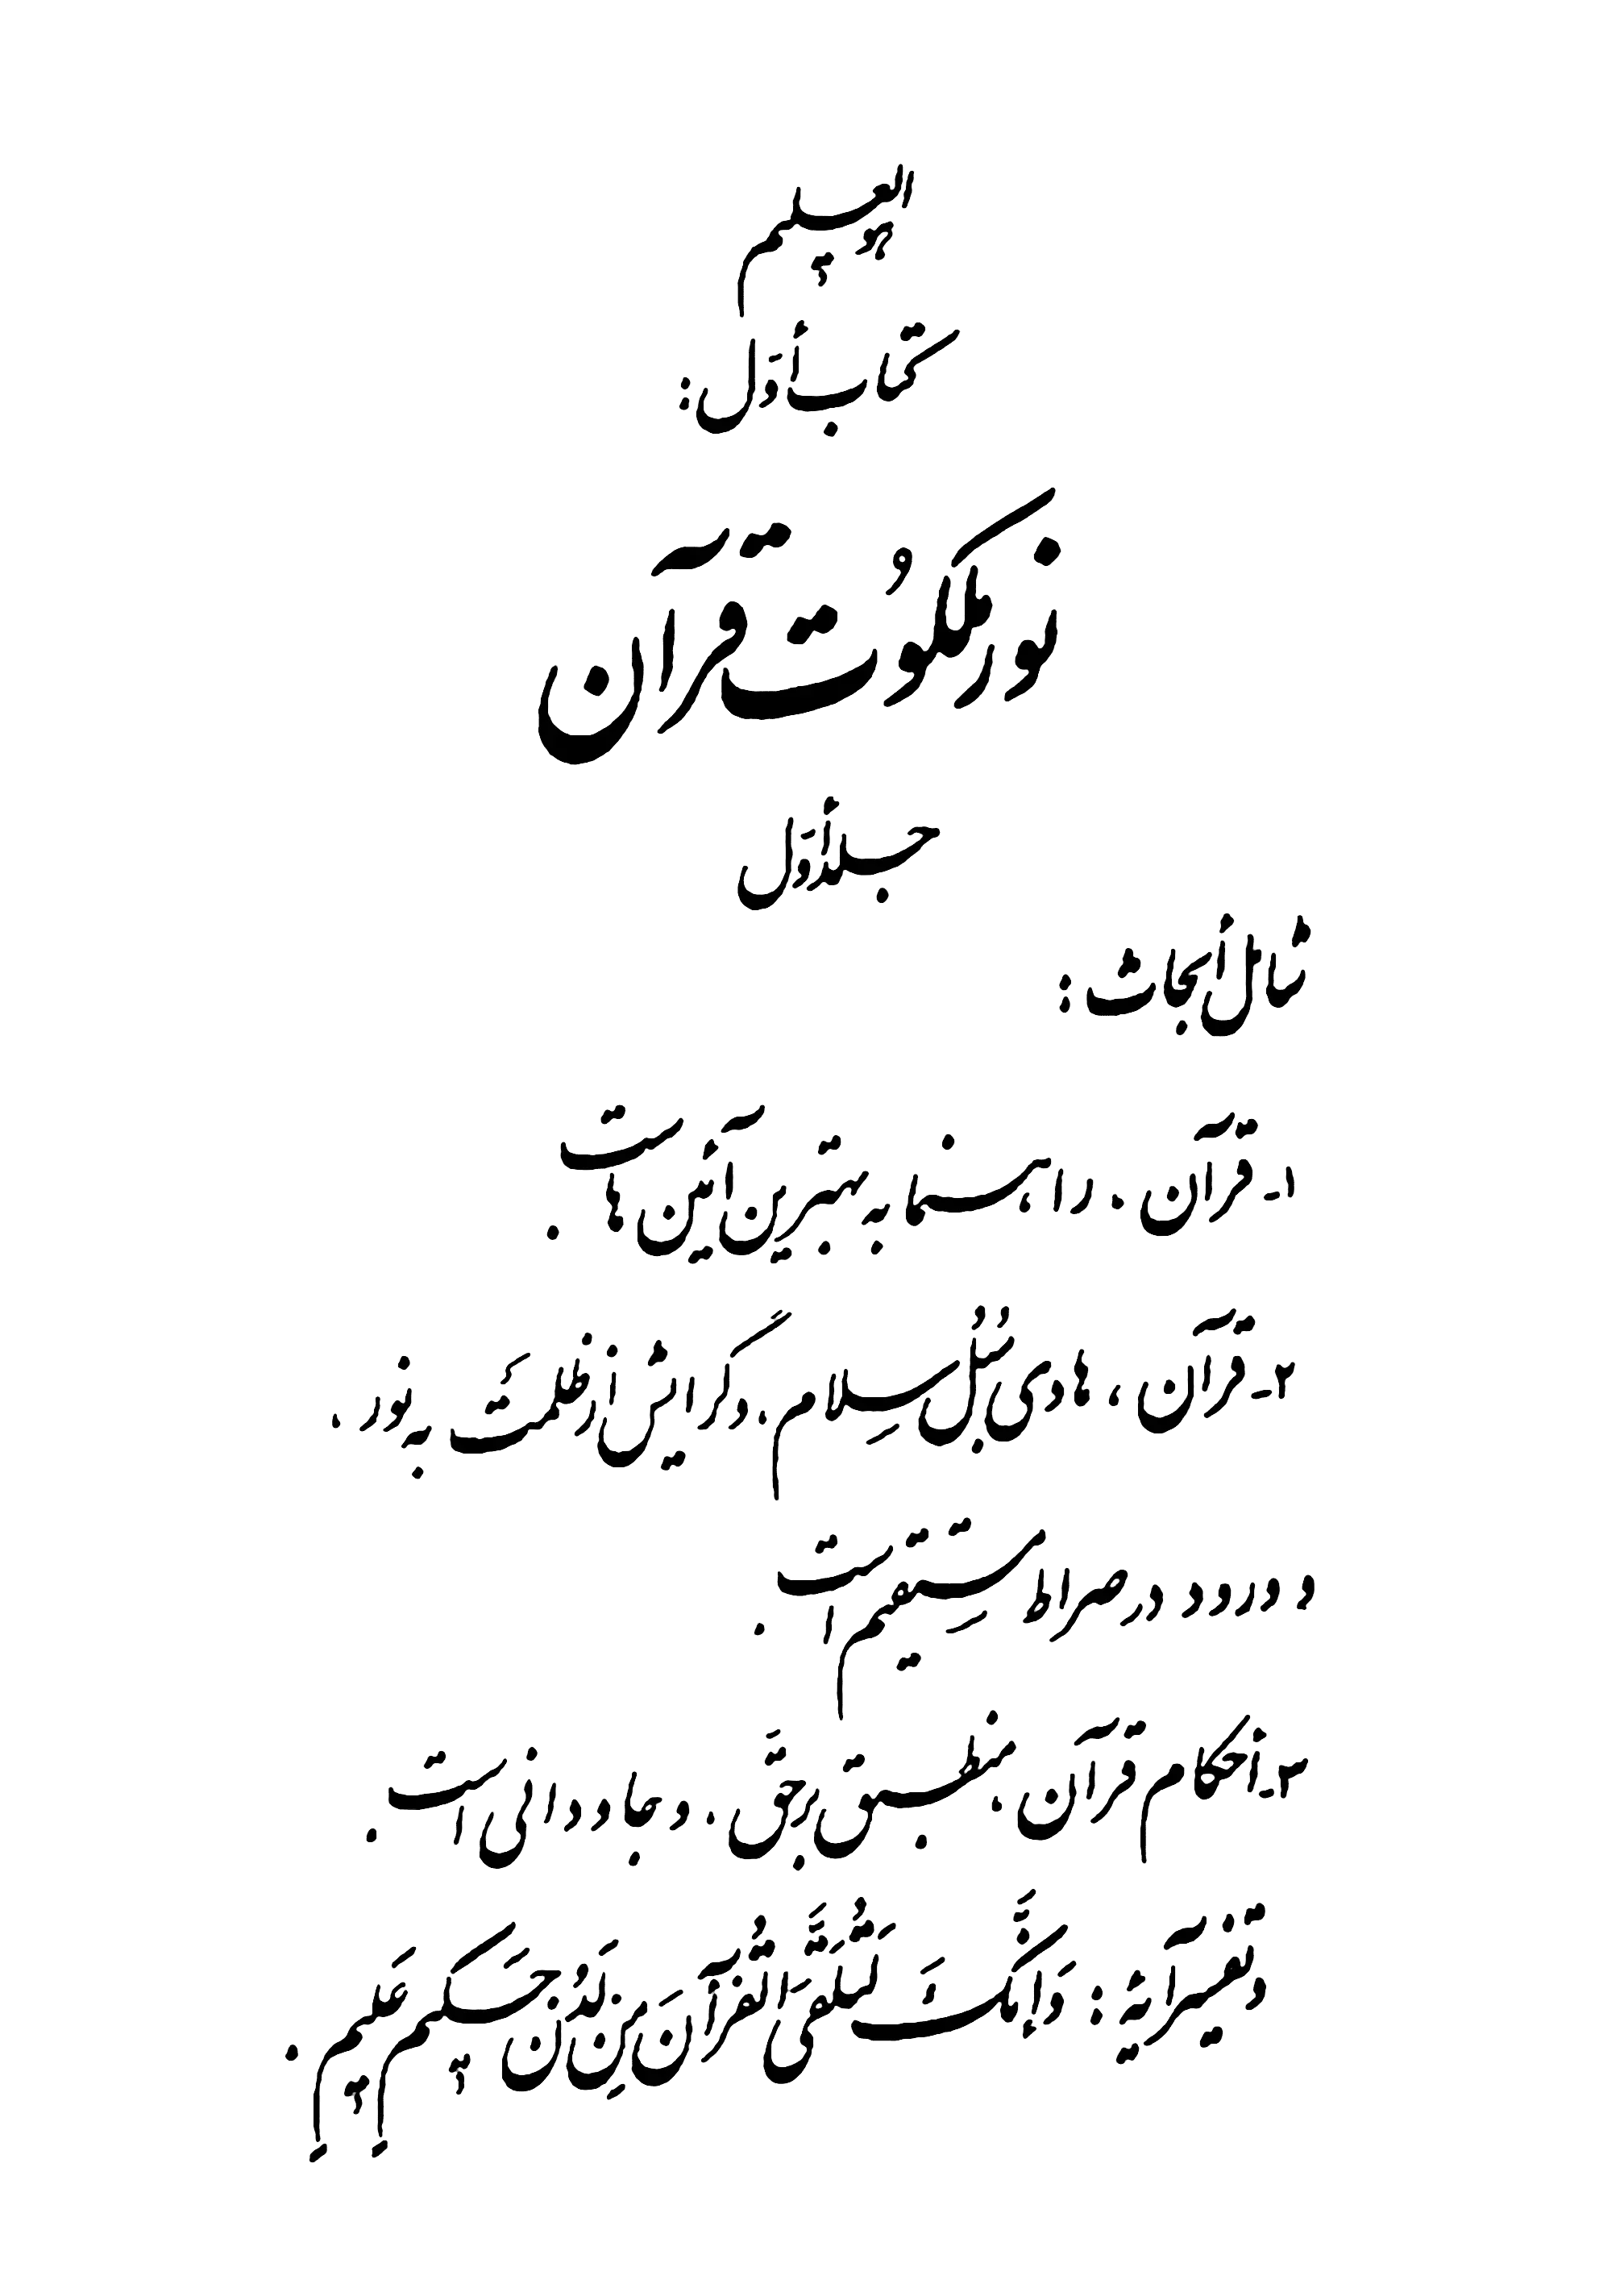 هو العلیم
کتاب أوّل:
نور ملکوُت قرآن
جلد أوّل
شامل أبحاث:
۱ـ قرآن، راهنما به بهترین آئین‌هاست.
۲ـ قرآن، هادی سُبُل سلام، و گرایش از ظلمت به نور،
و ورود در صراط مستقیم است.
۳ـ أحکام قرآن، منطبق بحقّ، و جاودانی است.
تفسیر آیۀ: وَإِنَّكَ لَتُلَقَّى الْقُرْآنَ مِن لَّدُنْ حَكِيمٍ عَلِيمٍ.